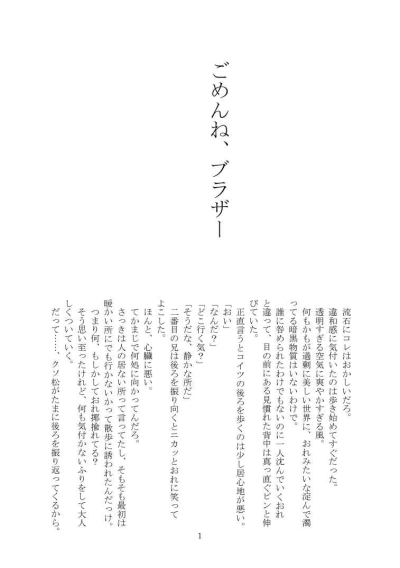 ごめんね、ブラザー
流石にコレはおかしいだろ。
違和感に気付いたのは歩き始めてすぐだった。
透明すぎる空気に爽やかすぎる風。
何もかもが過剰に美しい世界に、おれみたいな淀んで濁
ってる暗黒物質はいないわけで。
誰に咎められたわけでもないのに一人沈んでいくおれ
と違って、目の前にある見慣れた背中は真っ直ぐピンと伸
びていた。
正直言うとコイツの後ろを歩くのは少し居心地が悪い。
「おい」
「なんだ？」
「どこ行く気？」
「そうだな、静かな所だ」
二番目の兄は後ろを振り向くとニカッとおれに笑って
よこした。
ほんと、心臓に悪い。
てかまじで何処に向かってんだろ。
さっきは人の居ない所って言ってたし、そもそも最初は
暖かい所にでも行かないかって散歩に誘われたんだっけ。
つまり何、もしかしておれ揶揄れてる？
そう思い至ったけれど、何も気付かないふりをして大人
しくついていく。
だって……、クソ松がたまに後ろを振り返ってくるから。
1